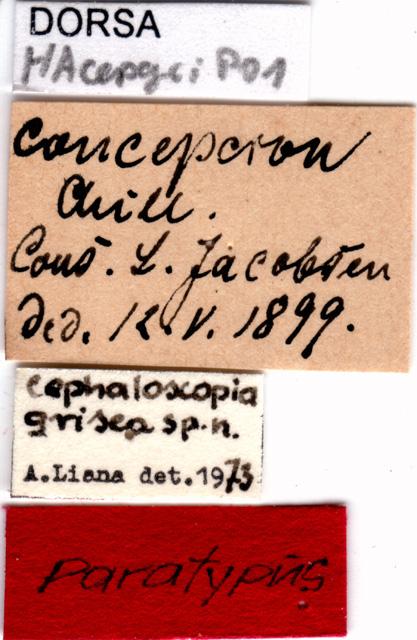 DORSA
HAcepgri P01
Concepcion
Chile.
Cons. L. Jacobsen
ded. 12. V. 1899.
cephaloscopia
grisea sp.n.
A.Liana det.1973
Paratypus